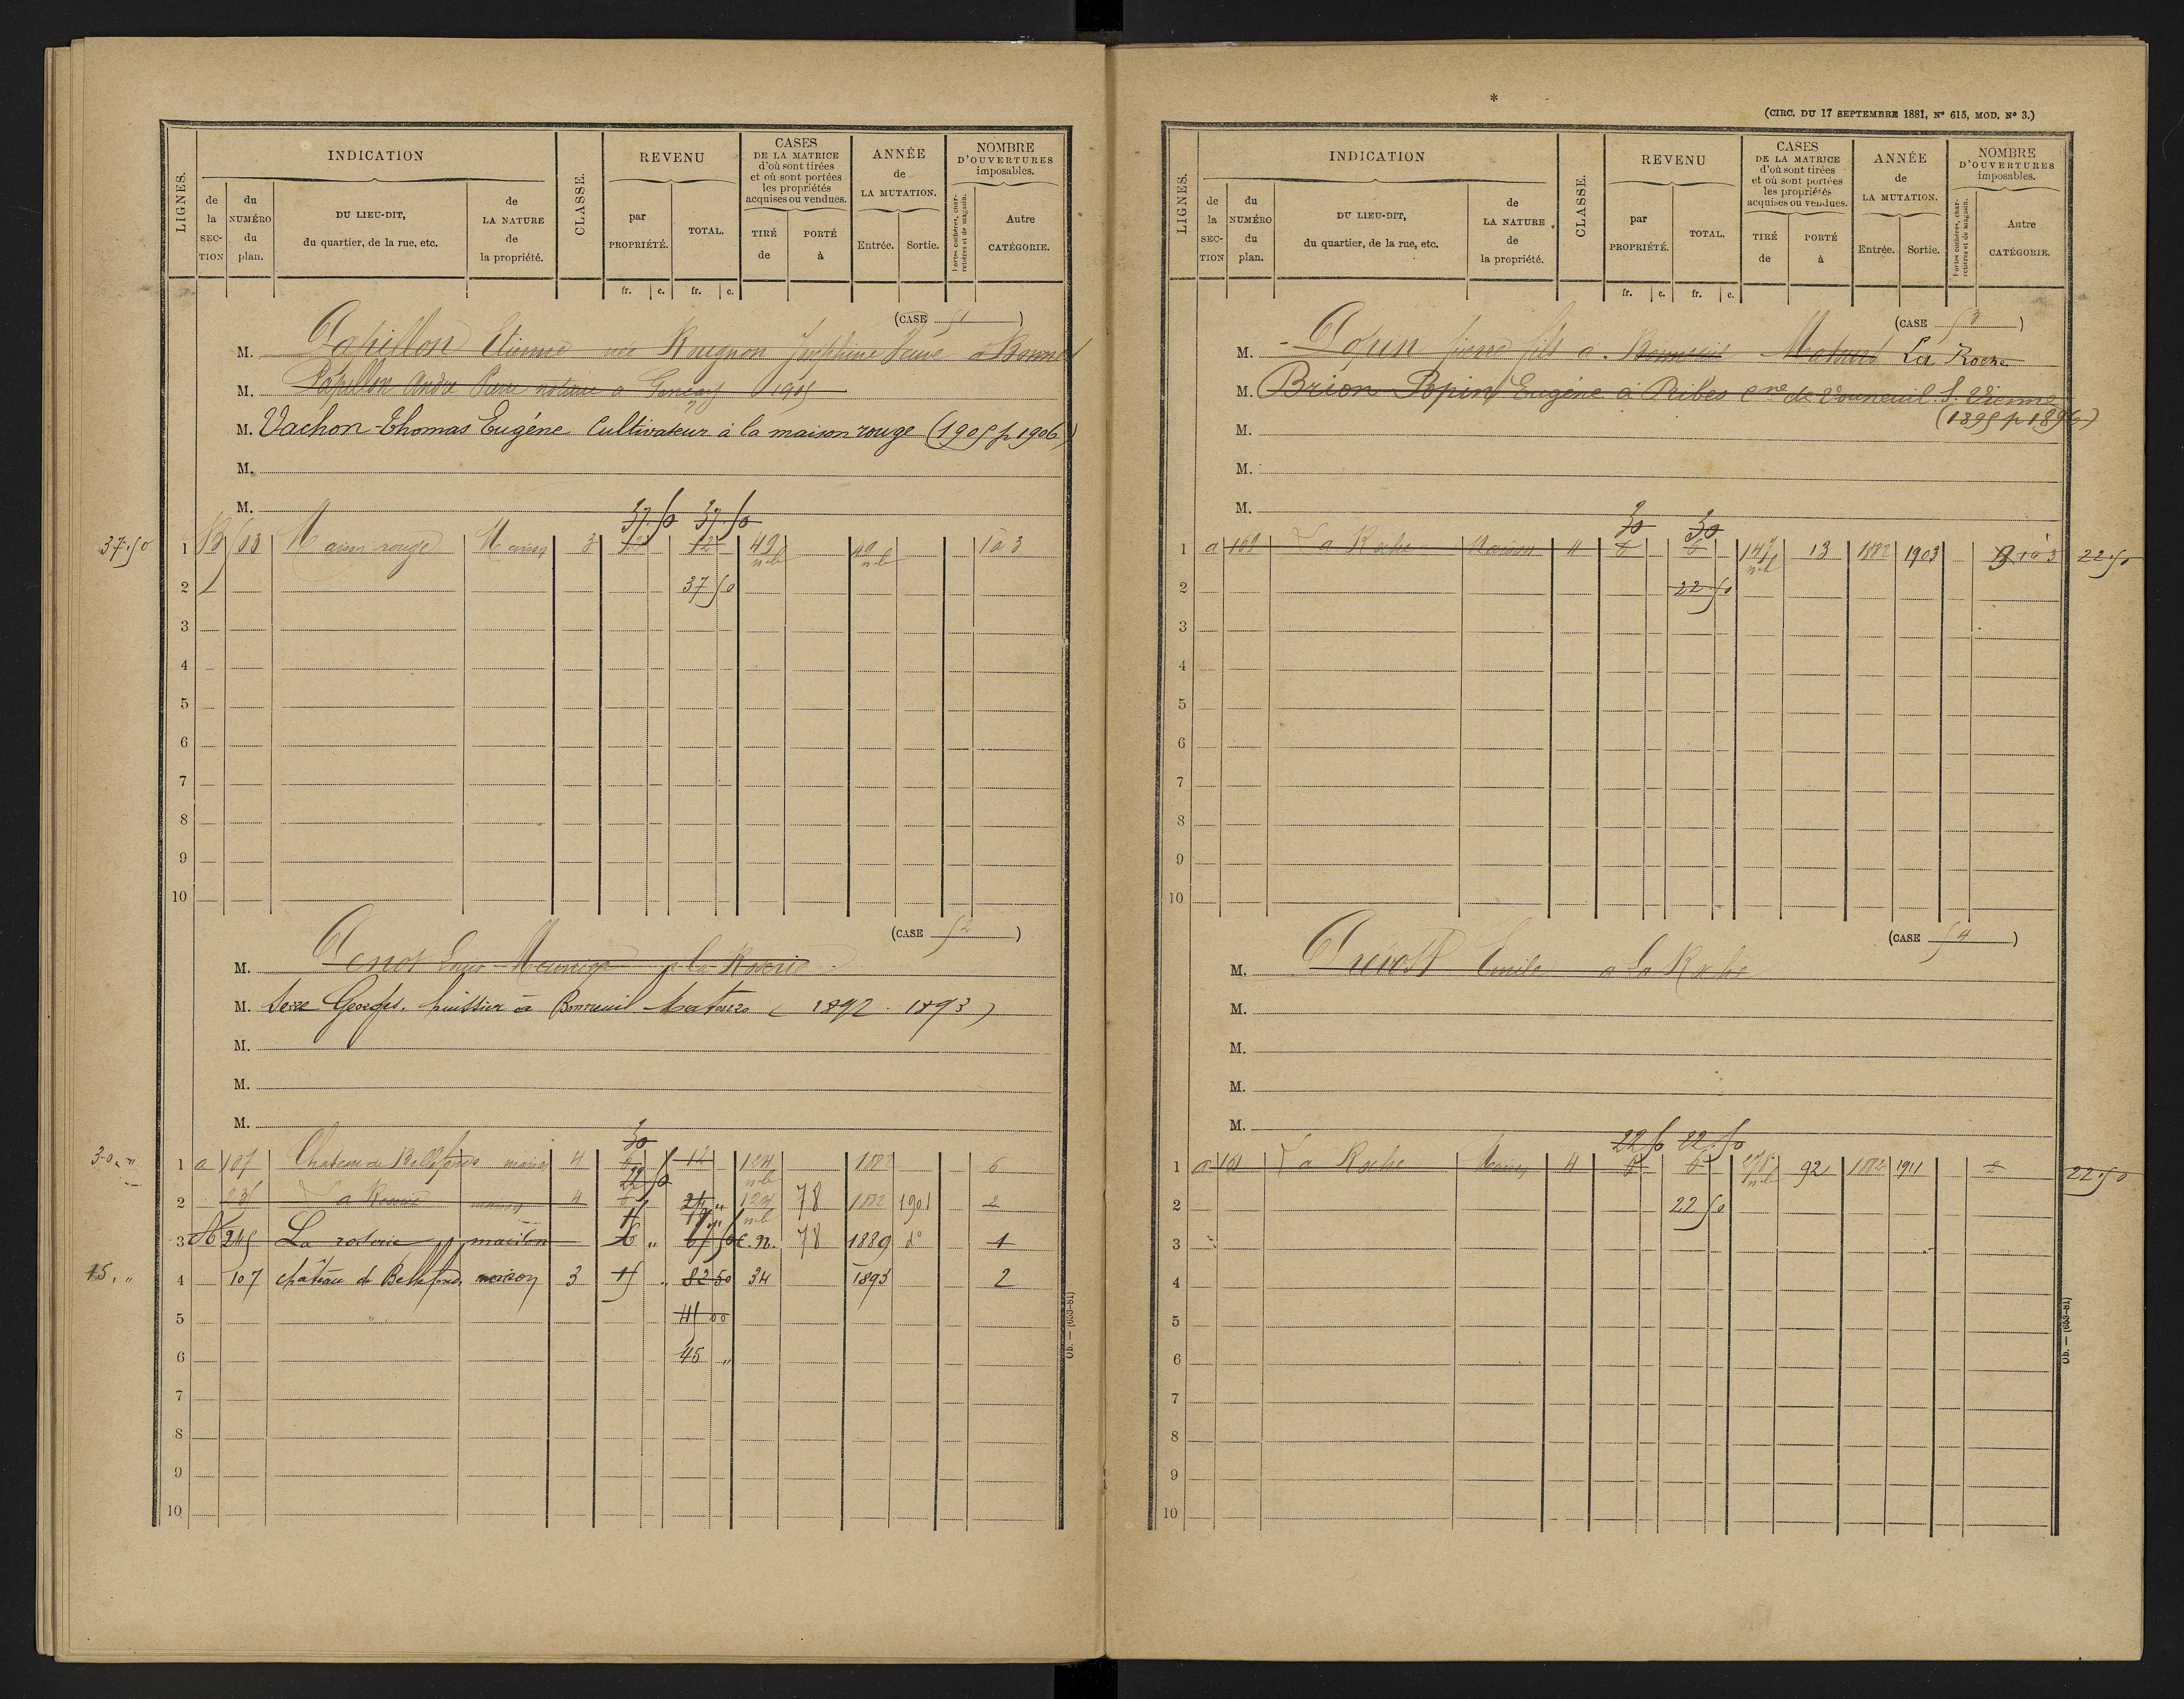 LIGNES.
INDICATION
de la SECTION
du NUMÉRO du plan.
DU LIEU-DIT, du quartier, de la rue, etc.
de LA NATURE de la propriété.
CLASSE.
REVENU
par PROPRIÉTÉ.
TOTAL.
fr. c. fr. c.
CASES DE LA MATRICE d'où sont tirées et où sont portées les propriétés acquises ou vendues.
TIRÉ de
PORTÉ à
ANNÉE de LA MUTATION.
Entrée. Sortie.
NOMBRE D'OUVERTURES imposables.
Portes cochères, charretières et de magasin.
Autre CATÉGORIE.
(CASE 51)
M. Papillon Etienne née Rougnon Joséphine Veuve à Bonneuil
M. Papillon André Pierre notaire à 1905
M. Vachon-Thomas Eugéne Cultivateur à la maison rouge (1905 p 1906)
M.
M.
37.50 37.50
37.50 1 Maison rouge Maison 3 12 12 49 1 à 3
2 37 50
3
4
5
6
7
8
9
10
(CASE 52)
M. Penot Louis Meunier à la Roserie
M. Georges, huissier à Bonneuil Matours (1892. 1893)
M.
M.
M.
30
30 " 1 a 107 Chateau de Bellefonds maison 4 6 12 124 1882 6
22 50
2 235 La Roserie maison 4 6 24 " 124 78 1882 1901 2
3 A 245 La roserie maison 67 50 C.N. 78 1889 d° 1
15. " 4 107 château de Bellefonds maison 3 15 " 82 50 34 1893 2
5 45 00
6 45 "
7
8
9
10
Ob. — (653-81)
*
(CIRC. DU 17 SEPTEMBRE 1881, Nº 615, MOD. Nº 3.)
LIGNES.
INDICATION
de la SECTION
du NUMÉRO du plan.
DU LIEU-DIT, du quartier, de la rue, etc.
de LA NATURE de la propriété.
CLASSE.
REVENU
par PROPRIÉTÉ.
TOTAL.
fr. c. fr. c.
CASES DE LA MATRICE d'où sont tirées et où sont portées les propriétés acquises ou vendues.
TIRÉ de
PORTÉ à
ANNÉE de LA MUTATION.
Entrée. Sortie.
NOMBRE D'OUVERTURES imposables.
Portes cochères, charretières et de magasin.
Autre CATÉGORIE.
(CASE 53)
M. Popin pierre fils à Bonneuil Matours La Roche
M. Brion-Popin Eugéne à Ribes cne de Vouneuil S. Vienne
(1895 p 1896)
M.
M.
M.
30 30
1 a 169 La Roche Maison 4 6 6 147 13 1882 1903 1 à 3 22.50
2 22.50
3
4
5
6
7
8
9
10
(CASE 54)
M. Prévost Emile à La Roche
M.
M.
M.
M.
22 50 22.50
1 a 161 La Roche Maison 4 6 6 92 1882 1911 2 22.50
2 22 50
3
4
5
6
7
8
9
10
Ob. — (653-81)